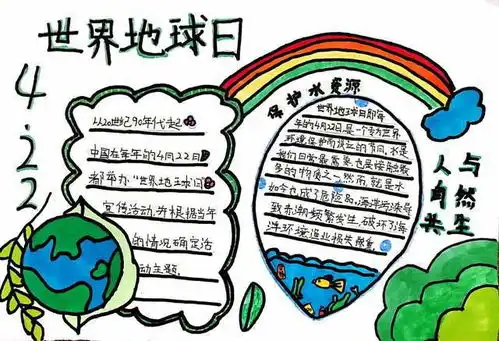 世界地球日
4.22
从20世纪90年代起
中国在每年的4月22日
都举办“世界地球日”
宣传活动,并根据当年
的情况确定活
动主题.
保护水资源
世界地球日即每
年的4月22日,是一个专为世界
环境保护而设立的节日,水是
我们日常最常
多的物质之一,然而,就是水
如今也成了危险品,海洋污染导
致赤潮频繁发生,破坏了海
洋环境造业损失颇重.
人与
自然
共生